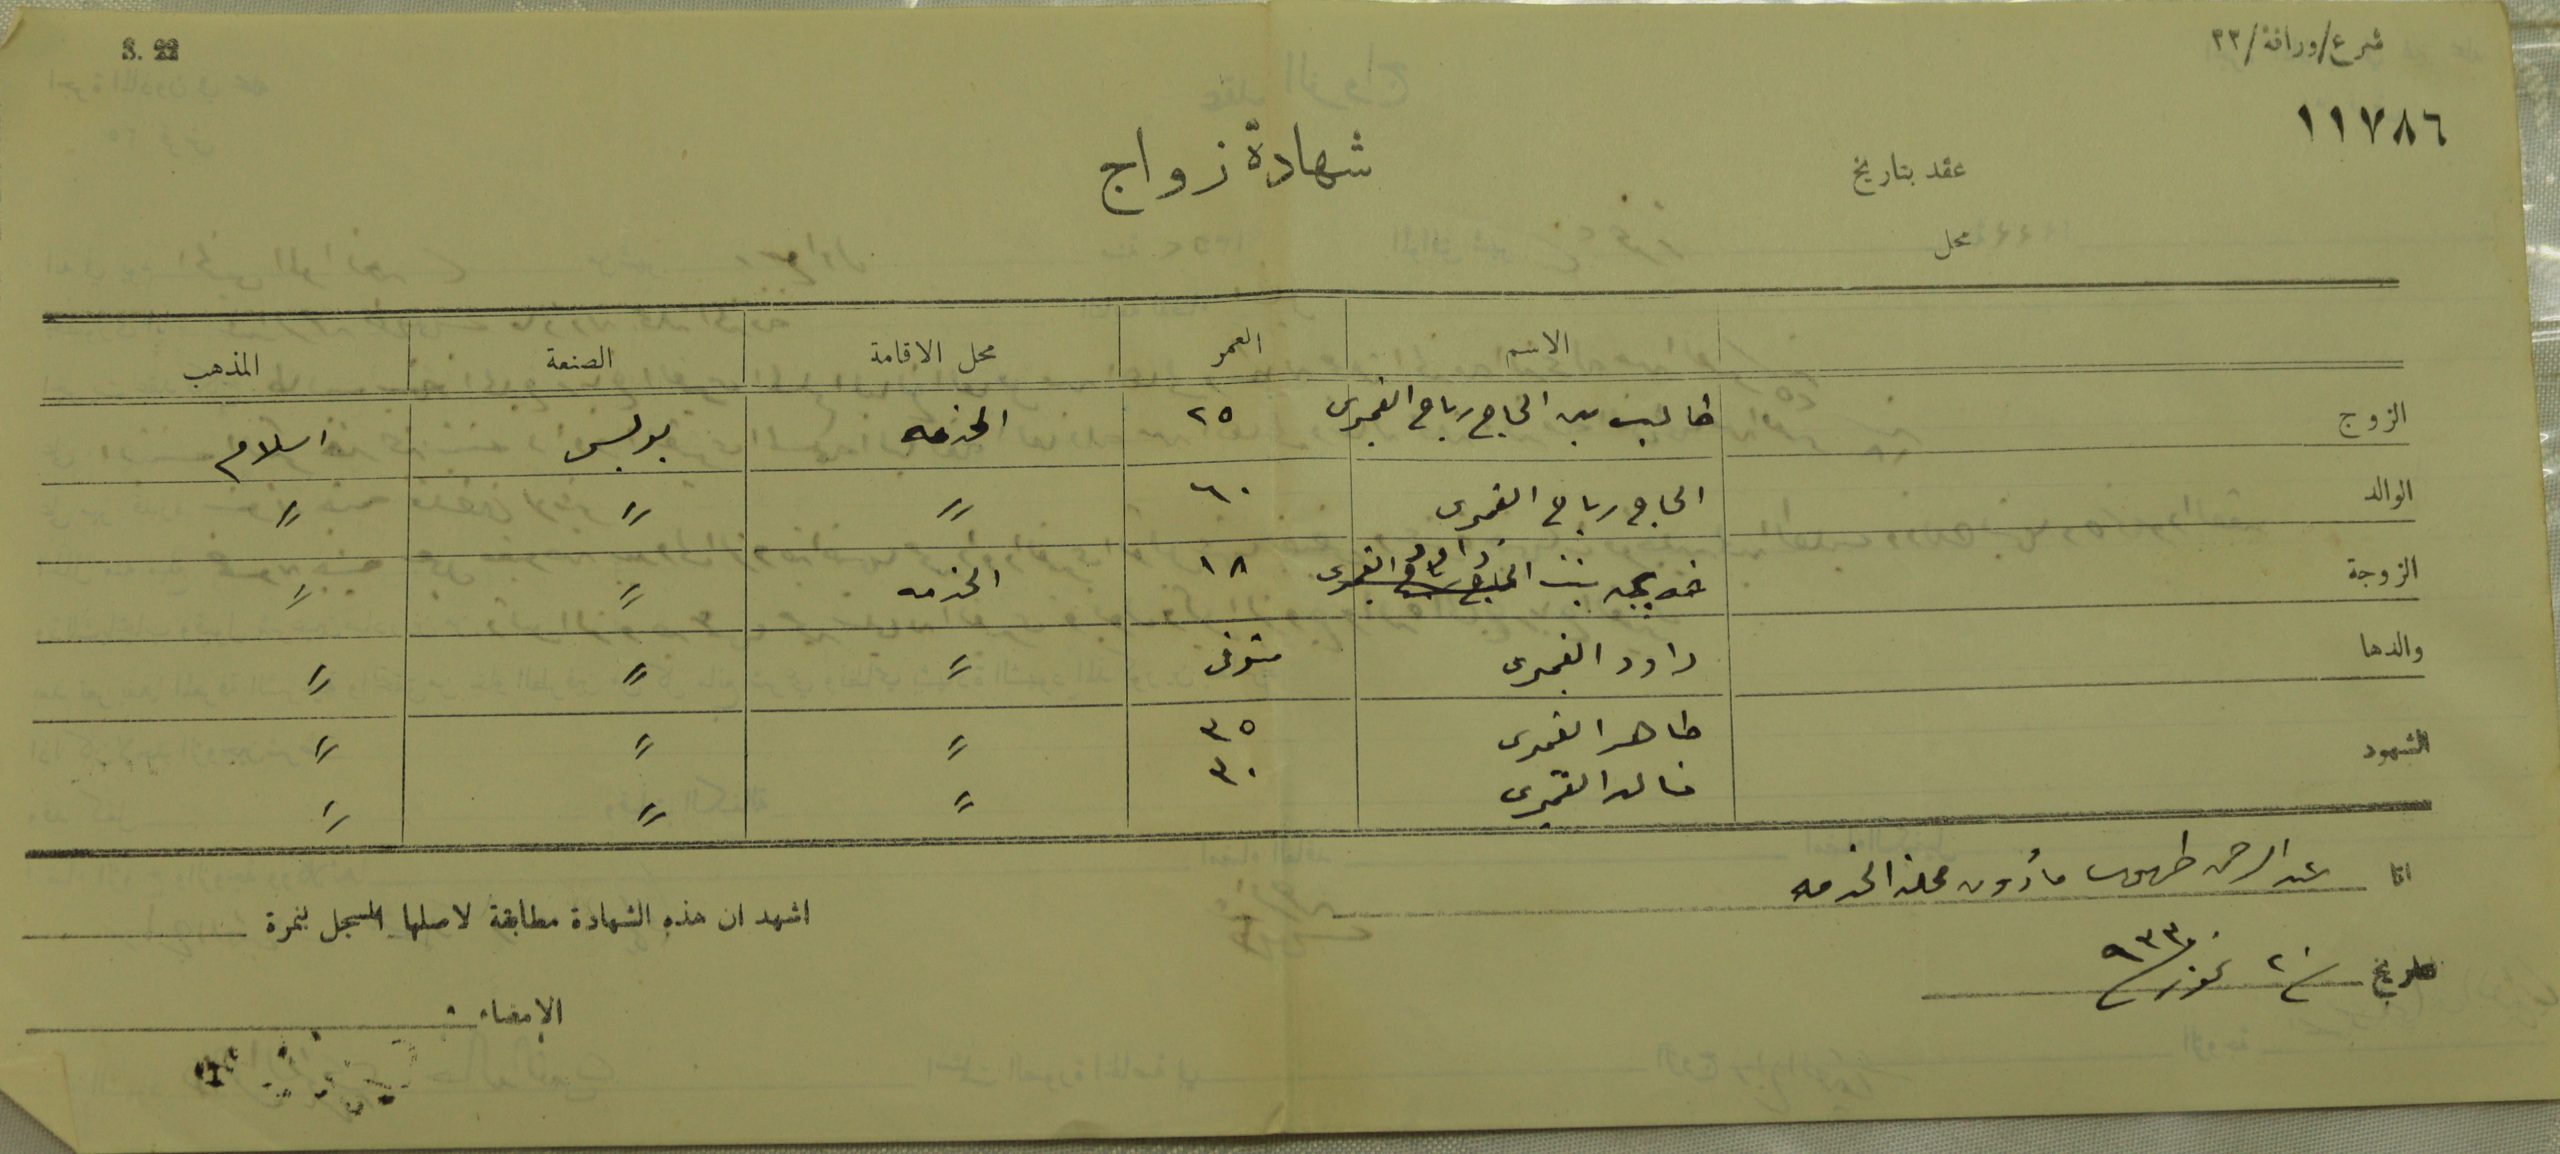 S. 22
شرع/وراقة/٢٢
١١٧٨٦
شهادة زواج
عقد بتاريخ
محل
الاسم العمر محل الاقامة الصنعة المذهب
الزوج طالب بن الحاج رباح القمري ٢٥ الخدمه بوليس اسلام
الوالد الحاج رباح القمري ٦٠〃 〃 〃
الزوجة خديجه بنت داود القمري ١٨ الخدمه 〃 〃
والدها داود القمري متوفى 〃 〃 〃
الشهود طاهر القمري ٣٥ 〃 〃 〃
خالد القمري ٣٠ 〃 〃 〃
انا عبد الرحمن طهبوب مأذون محلة الخدمه
اشهد ان هذه الشهادة مطابقة لاصلها المسجل بنمرة
بتاريخ ٢٠ تموز ٩٣٣
الإمضاء